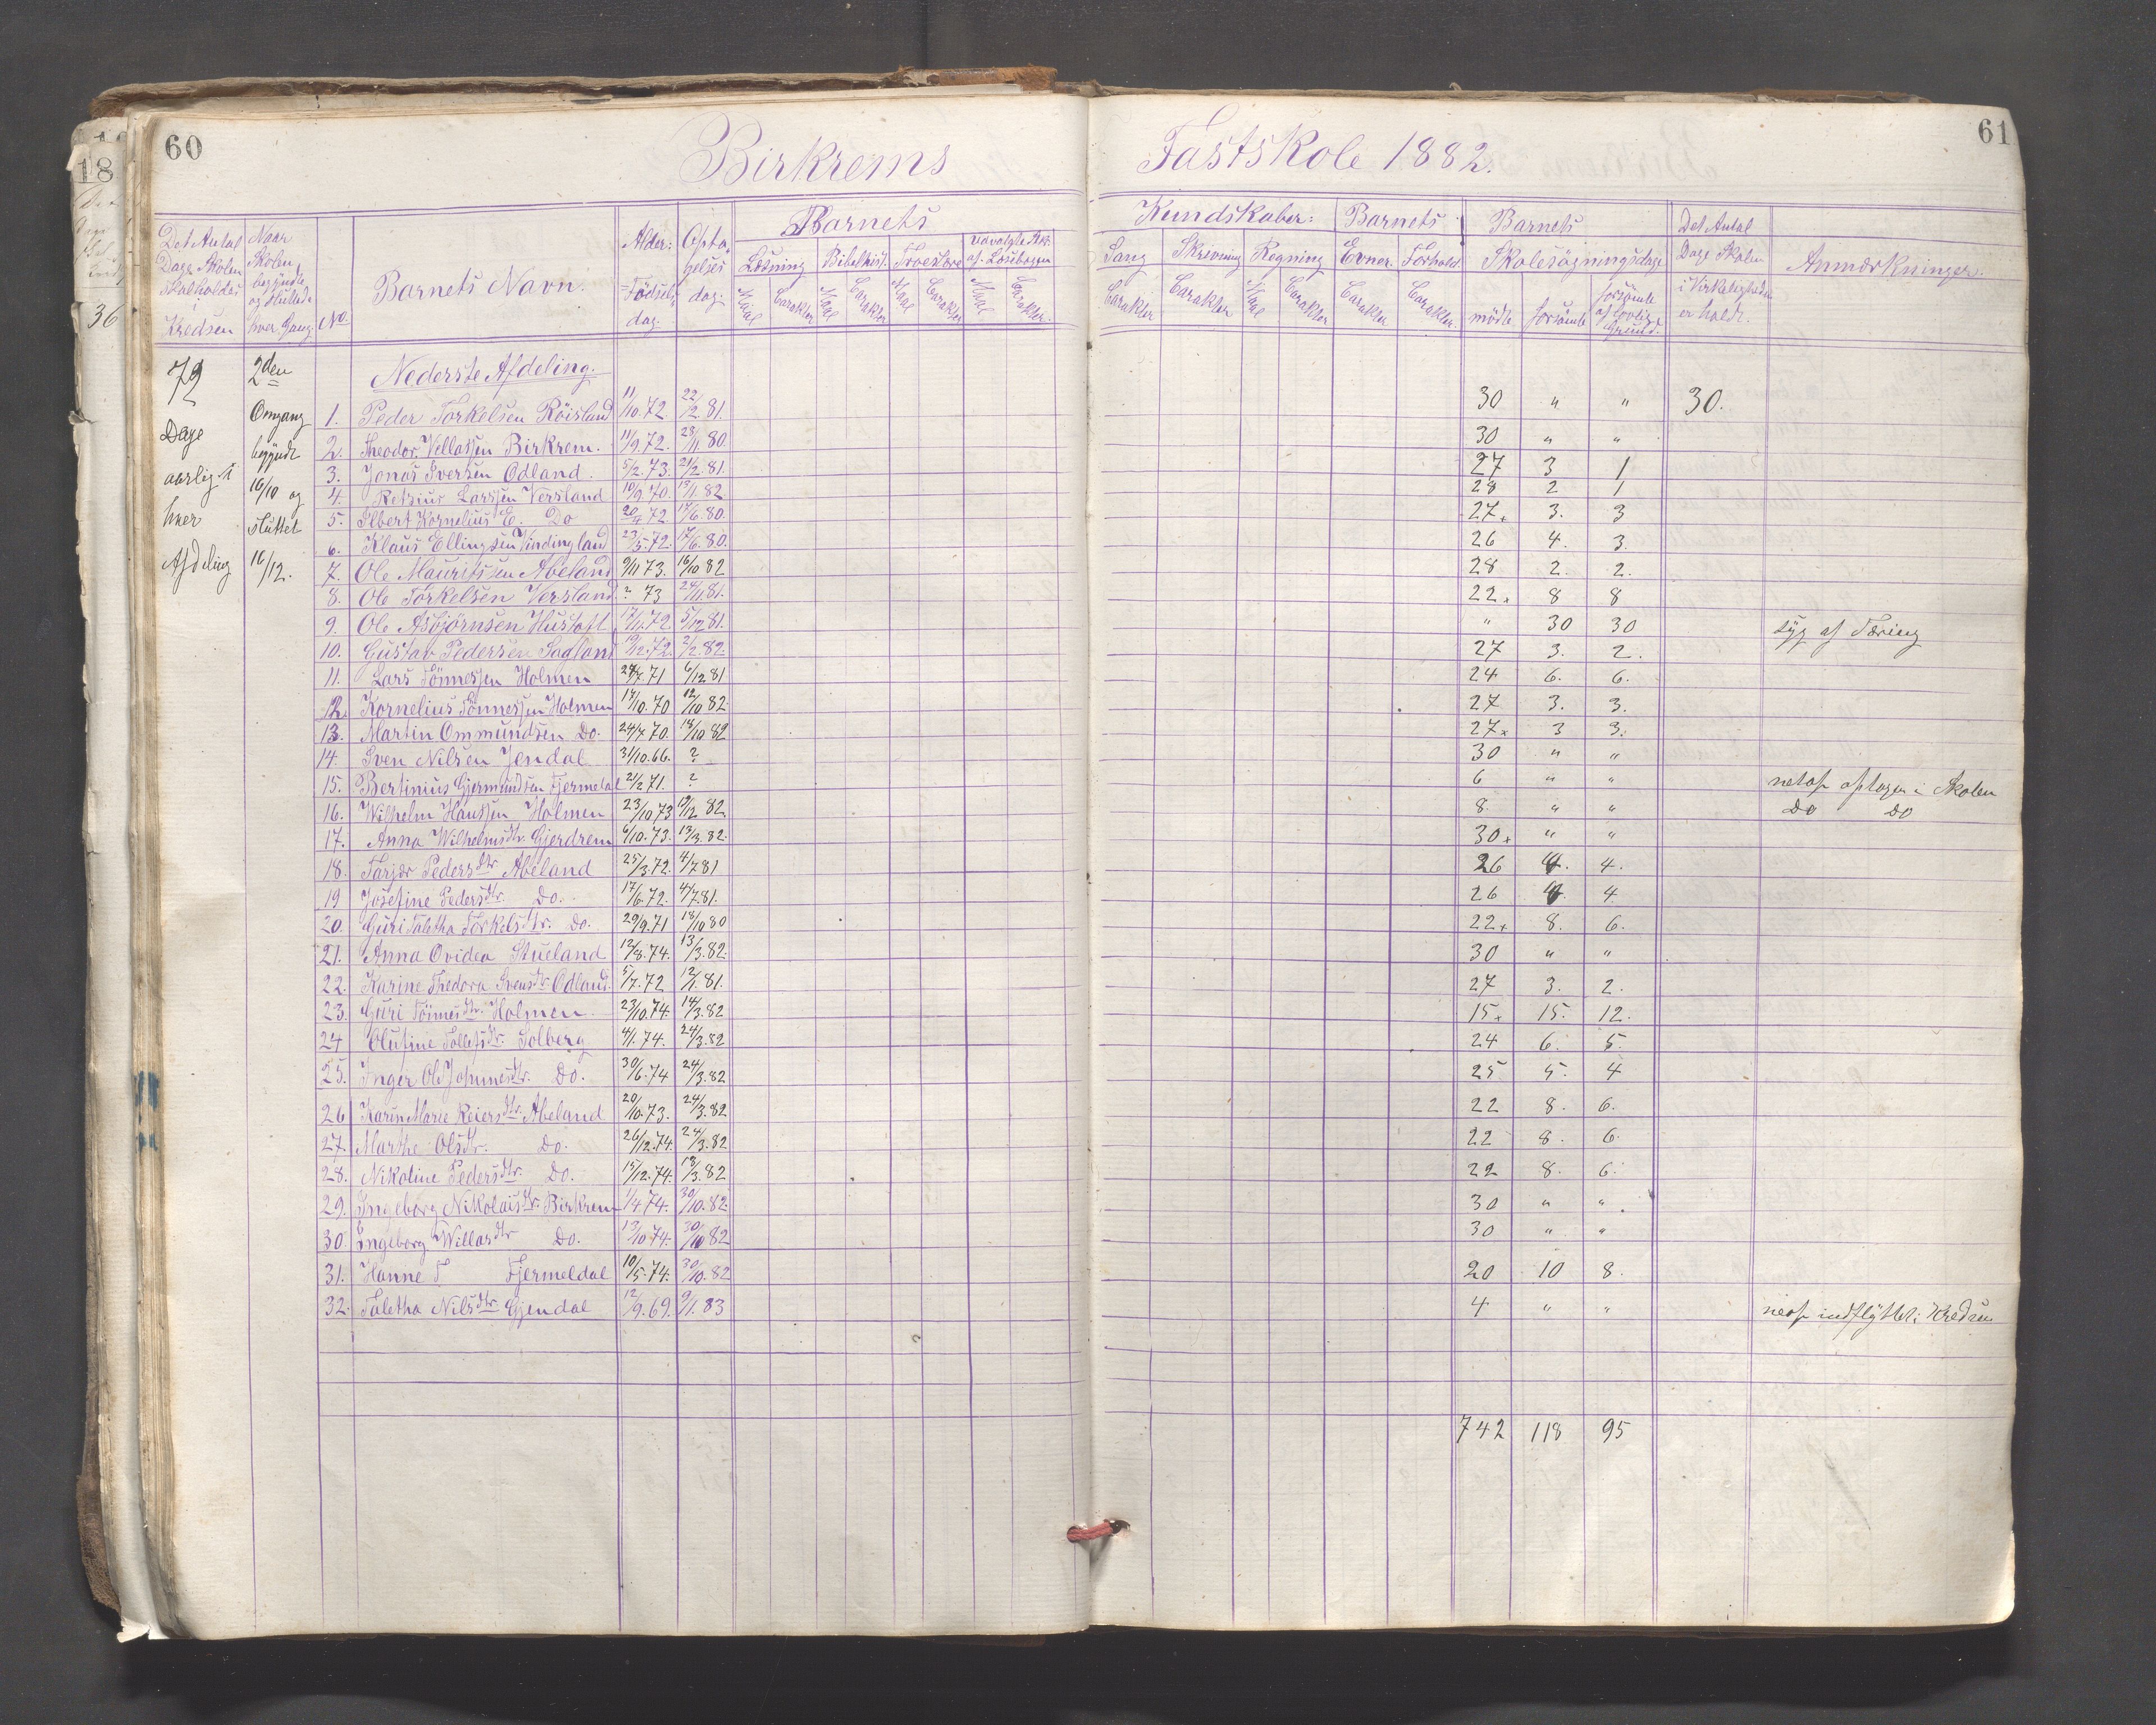 60
Birkrems
Fastskole 1882.
61
18
36
Det Antal Dage Skolen skal holdes i Kredsen
Naar Skolen begyndte og sluttede hver Gang
No.
Barnets Navn.
Alder: Fødsels dag.
Opta- gelses dag.
Barnets
Kundskaber:
Barnets
Barnets
Det Antal Dage Skolen i Virkeligheden er holdt.
Anmærkninger.
Læsning
Bibelhist.
Troeslære
udvalgte Stk. af Læsebogen
Sang
Skrivning
Regning
Evner.
Forhold.
Skolesøgningsdage
Maal Carakter Maal Carakter Maal Carakter Maal Carakter.
Carakter Carakter Maal Carakter Carakter Carakter.
mödte forsömte forsömte af lovlig Grund.
72 Dage aarlig i hver Afdeling
2den Omgang begyndt 16/10 og sluttet 16/12.
Nederste Afdeling.
1. Peder Torkelsen Röisland 11/10.72 22/12.81. 30 " " 30.
2. Theodor Vellassen Birkrem. 11/9.72. 23/11 80. 30 " "
3. Jonas Iversen Ödland. 5/2.73. 21/2.81. 27 3 1
4. Retzius Larssen Versland 10/9.70. 13/1.82. 28 2 1
5. Elbert Kornelius E. Do 20/4 72. 17/6.80. 27x 3. 3
6. Klaus Ellingsen Vindingland 23/5.72. 17/6.80. 26 4. 3.
7. Ole Mauritssen Abeland 9/11 73. 16/10 82 28 2. 2.
8. Ole Torkelsen Versland ? 73 24/11.81. 22x 8 8
9. Ole Asbjörnsen Hustoft 17/11.72. 5/12 81. " 30 30 syg af Tæring
10. Gustav Pedersen Sagland 19/12.72. 2/2.82. 27 3. 2.
11. Lars Tönnessen Holmen 24/7 71 6/12 81 24 6. 6.
12. Kornelius Tönnessen Holmen 17/10.70 12/10 82. 27 3. 3.
13. Martin Ommundsen Do. 24/7 70. 18/10 82 27x 3 3.
14. Sven Nilsen Jendal 31/10.66. ? 30 " "
15. Bertinius Gjermundsen Fjermedal 21/2 71. ? 6 " " netop optagen i Skolen
16. Wilhelm Hanssen Holmen 23/10 73 19/12 82 8. " " Do Do
17. Anna Wilhelmsdtr. Gjerdrem 6/10.73. 13/3.82. 30x " "
18. Tarjer Pedersdtr. Abeland 25/3.72. 4/7 81 26 4. 4.
19 Josefine Pedersdtr. Do. 17/6.72. 4/7 81. 26 4. 4
20. Guri Taletha Torkelsdtr. Do. 29/9.71 18/10 80 22x 8. 6.
21. Anna Ovidea Stueland 12/8.74. 13/3.82. 30 " "
22. Karine Thedora Svensdtr. Ödland. 5/7.72 12/1.81. 27 3. 2.
23. Guri Tönnesdtr. Holmen 23/10.74. 14/3.82 15x 15. 12.
24 Olufine Tollefsdtr. Solberg 4/1.74. 24/3.82 24 6. 5.
25. Inger Ol. Johannesdtr. Do. 30/6.74 24/3.82 25 5. 4
26 Karin Marie Reiersdtr. Abeland 20/10.73. 24/3.82 22 8. 6.
27. Marthe Olsdtr. Do. 26/12.74. 24/3.82 22 8. 6.
28. Nikoline Pedersdtr. Do. 15/12.74. 13/3.82 22 8. 6.
29. Ingeborg Nikolaisdtr. Birkrem 1/4 74. 30/10.82. 30 " "
30. Ingeborg Willasdtr Do. 13/10 74. 30/10 82 30 " "
31. Hanne T Fjermeldal 10/5.74. 30/10.82 20 10 8.
32. Taletha Nilsdtr. Gjendal 12/9.69. 9/1.83 4 " " netop indflyttet i Kredsen
742 118 95